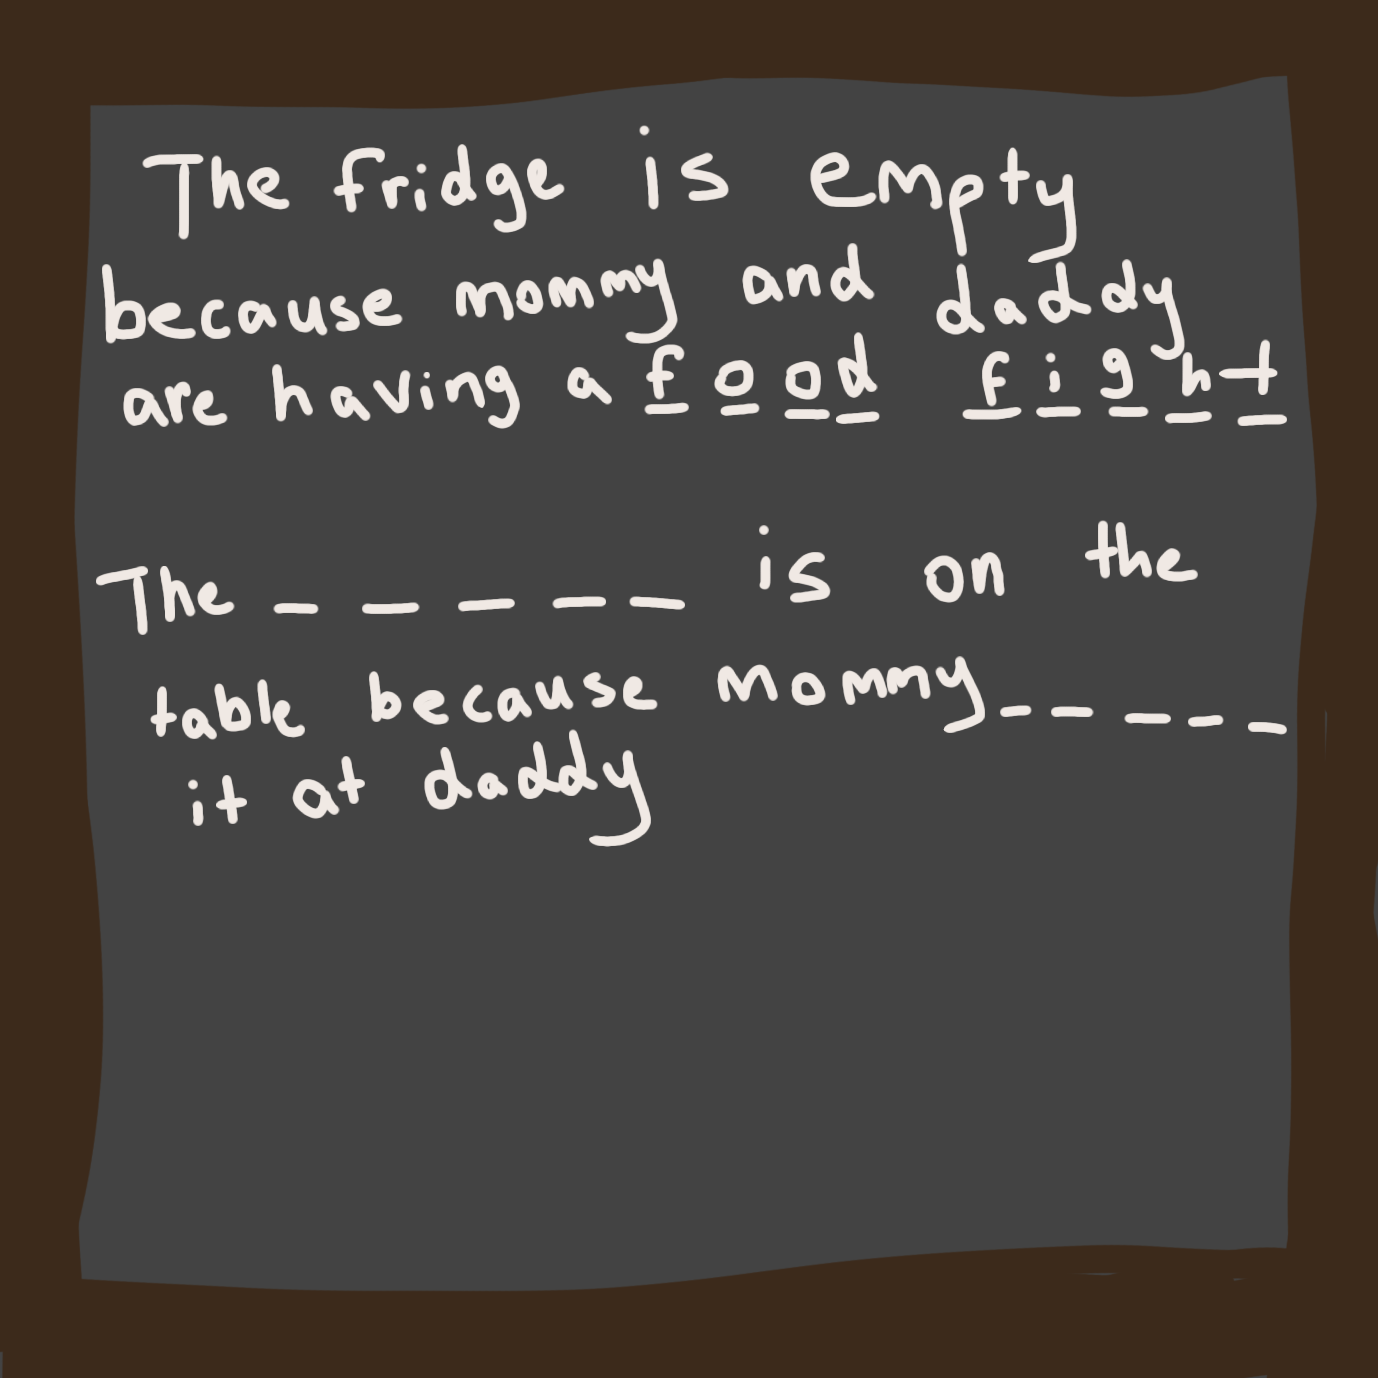 The fridge is empty
because mommy and daddy
are having a food fight
The _ _ _ _ _ is on the
table because mommy _ _ _ _ _
it at daddy